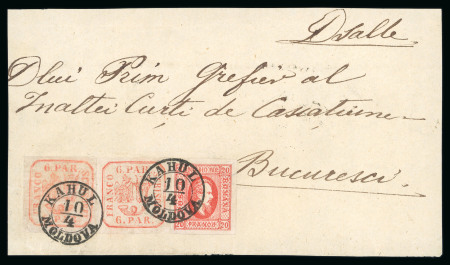 D Salle
Dlui Prim Grefier al
Inaltei Curti de Casatiune
Bucuresci
6 PAR.
FRANCO
6. PAR.
6 PAR.
FRANCO
6. PAR.
20
20
ROMANA
20
FRANCO
20
KAHUL
10/4
MOLDOVA
KAHUL
10/4
MOLDOVA